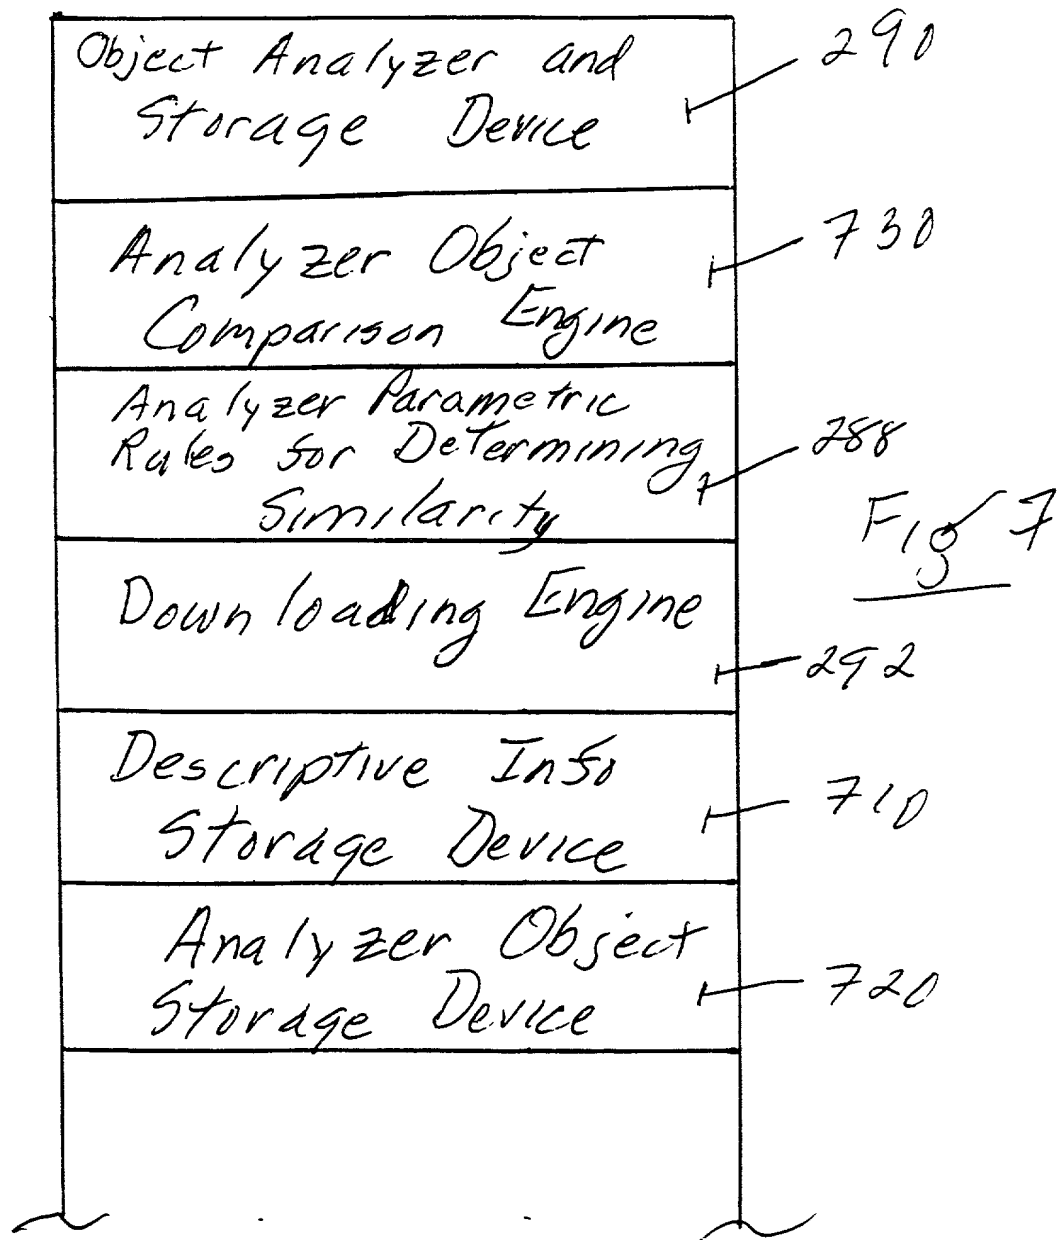 Object Analyzer and
Storage Device
290
Analyzer Object
Comparison Engine
730
Analyzer Parametric
Rules for Determining
Similarity
288
Fig 7
Downloading Engine
292
Descriptive Info
Storage Device
710
Analyzer Object
Storage Device
720